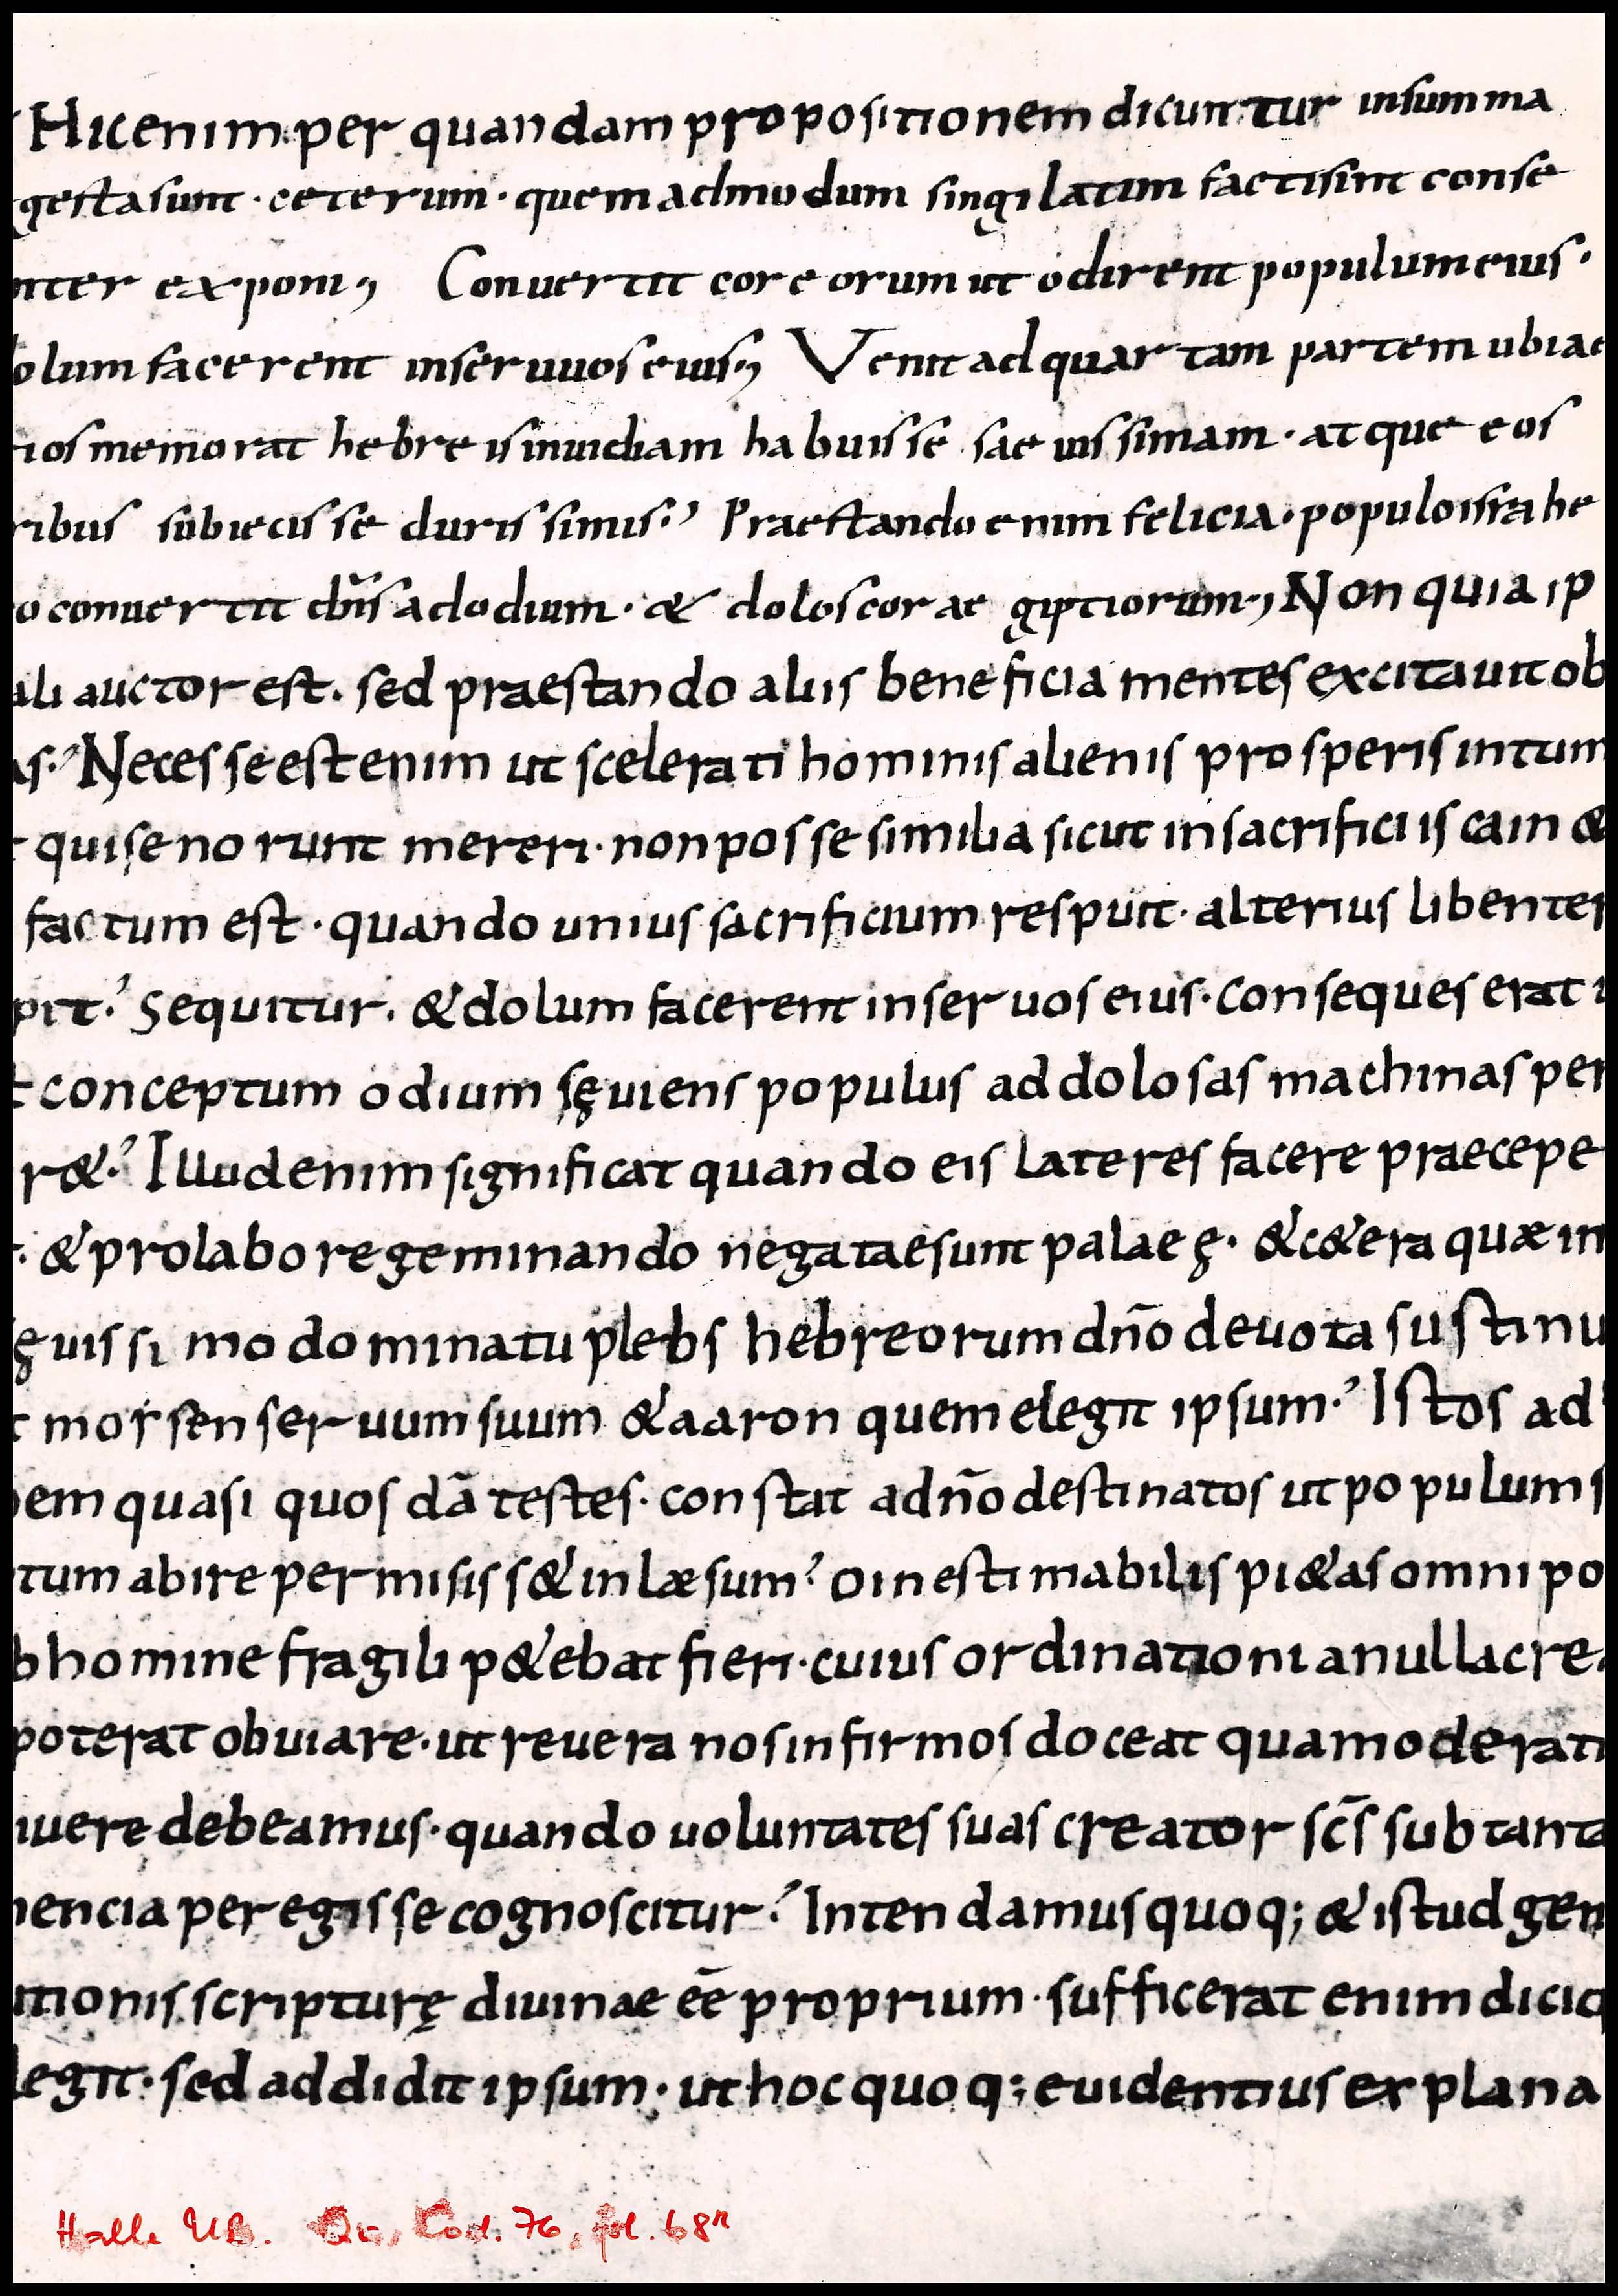 Hicenim per quandam propositionem dicuntur insumma
gestasunt · ceterum · quem admodum singilatim factisint conse
nter exponi; Conuertit cor eorum ut odirent populum eius ·
olum facerent inseruuos eius; Venit ad quartam partem ubi ae
rios memorat hebreis inuidiam habuisse saeuissimam · atque eos
ribus subiecisse durissimis· Praestando enim felicia · populo israhe
o conuertit dn̄s ad odium · & dolos cor aegiptiorum·; Non quia ip
ali auctor est · sed praestando aliis beneficia mentes excitauit ob
as· Necesse est enim ut scelerati hominis alienis prosperis intum
qui se norunt mereri · non posse similia sicut in sacrificiis cain &
factum est · quando unius sacrificium respuit · alterius libenter
pit· Sequitur · & dolum facerent in seruos eius · conseques erat i
t conceptum odium sęuiens populus ad dolosas machinas per
r&· Illud enim significat quando eis lateres facere praecepe
· & pro labore geminando negatae sunt palaeę · & c&era quæ in
ęuissimo dominatu plebs hebreorum dn̄o deuota sustinu
t morsen seruum suum & aaron quem elegit ipsum· Istos ad
em quasi quosdā testes · constat a dn̄o destinatos ut populum s
tum abire permisiss& inlæsum· O inestimabilis pi&as omnipo
b homine fragili p&ebat fieri · cuius ordinationi a nulla crea
poterat obuiare · ut reuera nos infirmos doceat qua moderati
iuere debeamus · quando uoluntates suas creator sc̄s sub tanta
nencia peregisse cognoscitur· Intendamus quoq; & istud gen
utionis scripturę diuinae eē proprium · sufficerat enim dici q
legit · sed addidit ipsum · ut hoc quoq; euidentius explana
Halle UB. Qu. Cod. 76, fol. 68r